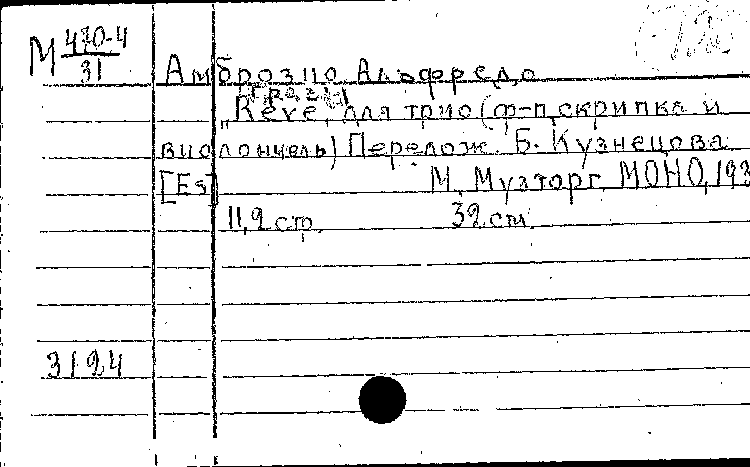 М 470-4
31
Амброзио Альфредо
„Reve" для трио (ф-п, скрипка и
виолончель) Перелож. Б. Кузнецова
[Es] М. Музторг МОНО, 193
11,2 стр. 32 cm.
3124